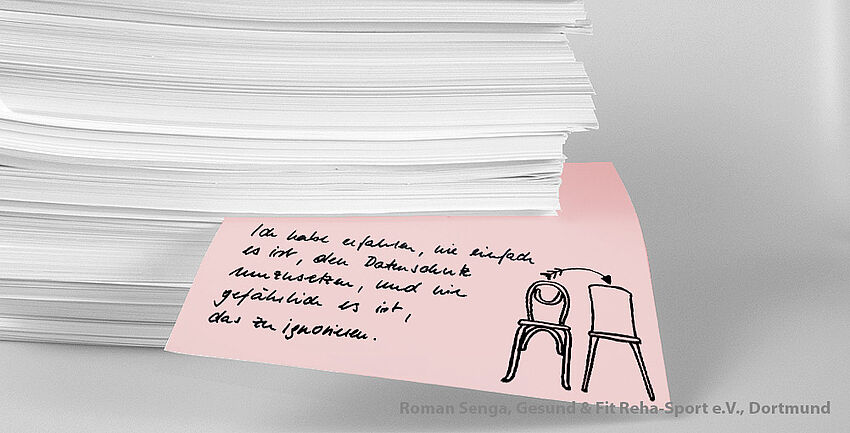 Ich habe erfahren, wie einfach
es ist, den Datenschutz
umzusetzen, und wie
gefährlich es ist,
das zu ignorieren.
Roman Senga, Gesund & Fit Reha-Sport e.V., Dortmund